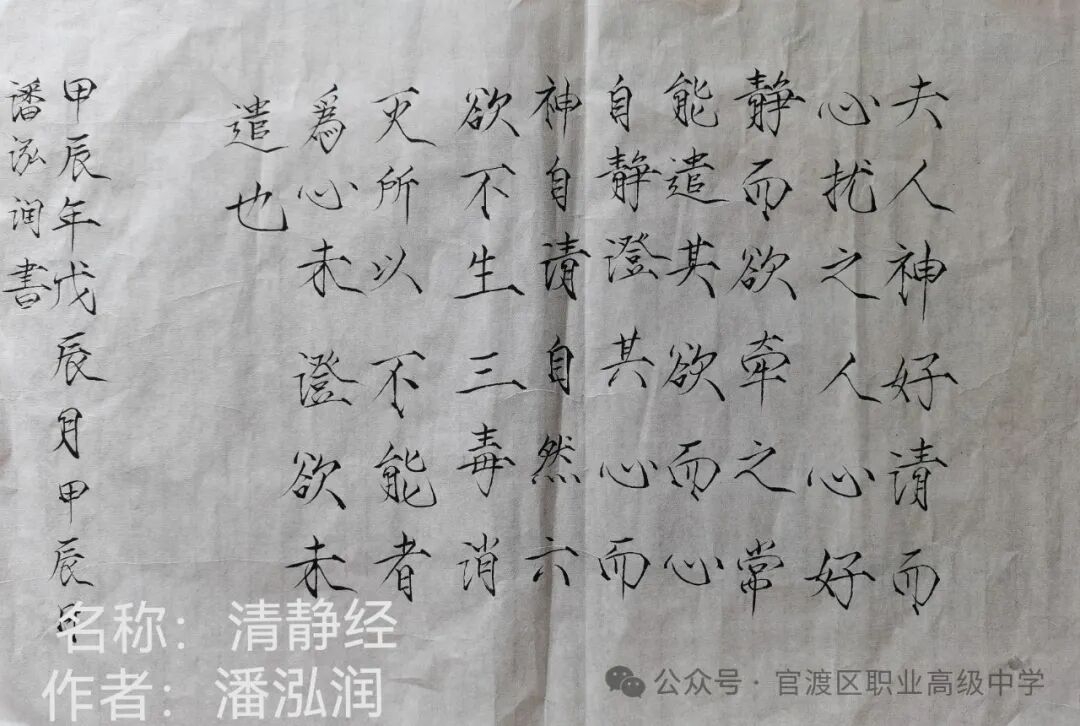 夫人神好清而
心扰之人心好
静而欲牵之常
能遣其欲而心
自静澄其心而
神自清自然六
欲不生三毒消
灭所以不能者
為心未澄欲未
遣也
甲辰年戊辰月甲辰日
潘泓润書
名称：清静经
作者：潘泓润
公众号·官渡区职业高级中学